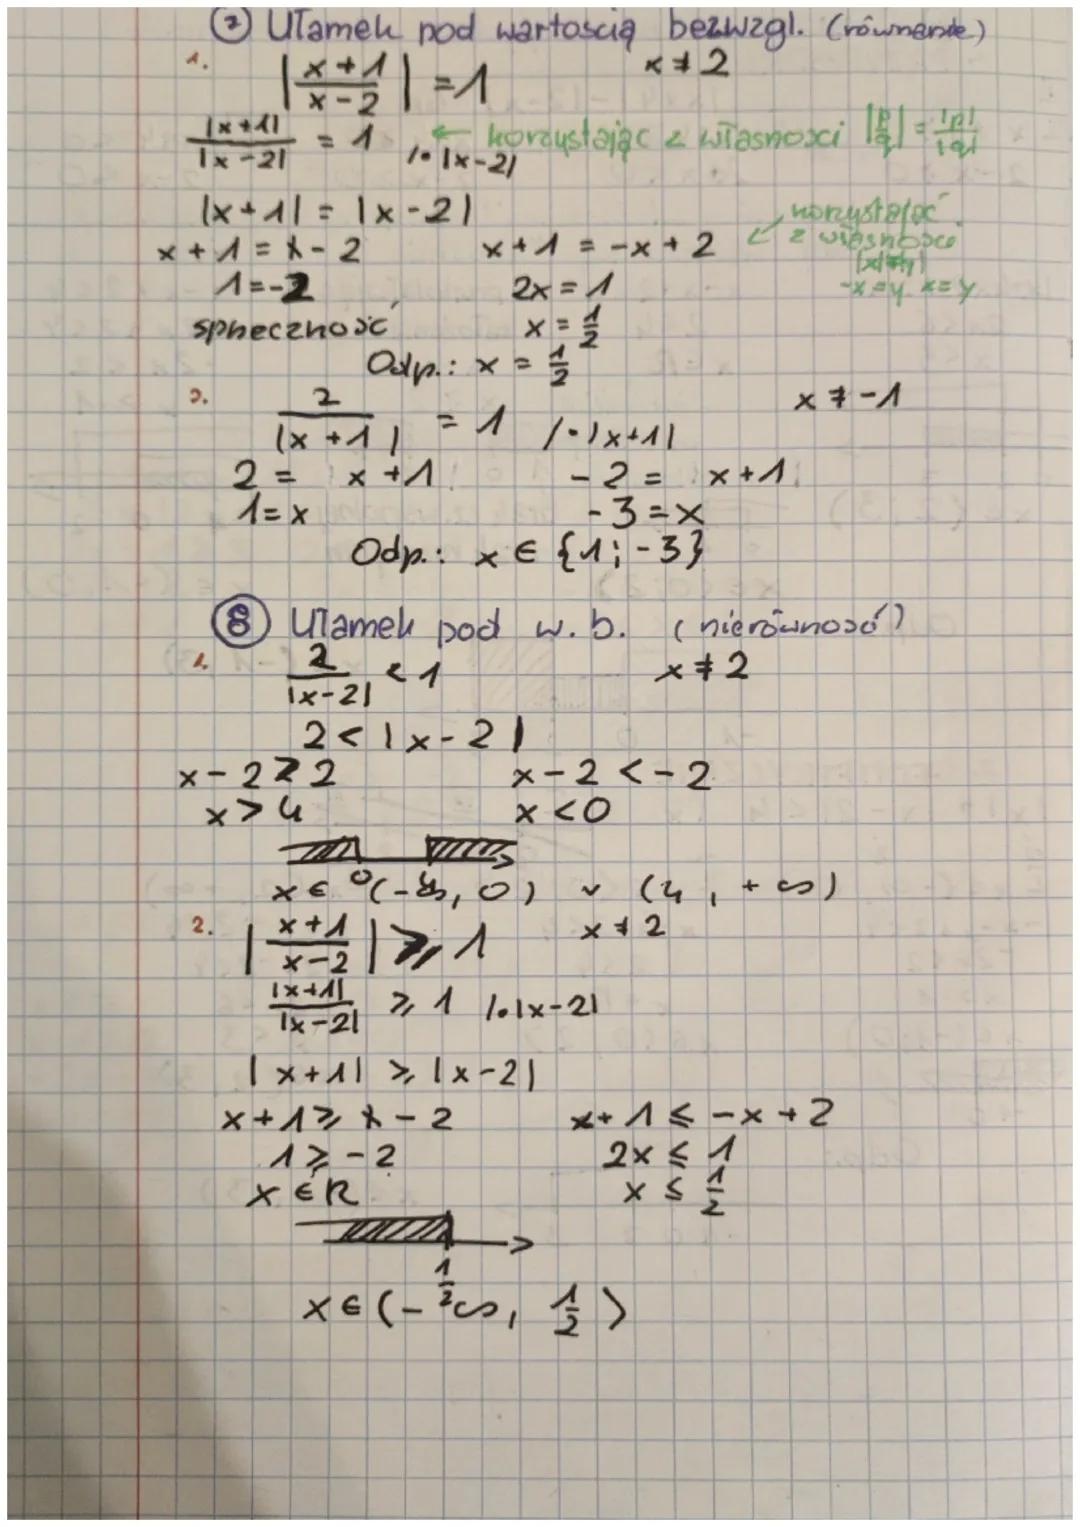 7 Ułamek pod wartością bezwzgl. (równanie)
1. |x+1 / x-2| = 1 x ≠ 2
|x+1| / |x-2| = 1 /·|x-2| ← korzystając z własności |p/q| = |p|/|q|
|x+1| = |x-2|
x+1 = x-2 x+1 = -x+2 ↙ korzystając z własności
1=-2 2x = 1 -x=y x=y
sprzeczność x = 1/2
Odp.: x = 1/2
2. 2 / |x+1| = 1 /·|x+1| x ≠ -1
2 = x+1 -2 = x+1
1=x -3=x
Odp.: x ∈ {1; -3}
8 Ułamek pod w. b. (nierówność)
1. 2 / |x-2| < 1 x ≠ 2
2 < |x-2|
x-2 > 2 x-2 < -2
x > 4 x < 0
0 4
x ∈ (-∞, 0) ∨ (4, +∞)
2. |x+1 / x-2| ⩾ 1 x ≠ 2
|x+1| / |x-2| ⩾ 1 /·|x-2|
|x+1| ⩾ |x-2|
x+1 ⩾ x-2 x+1 ⩽ -x+2
1 ⩾ -2 2x ⩽ 1
x ∈ R x ⩽ 1/2
1/2
x ∈ (-∞, 1/2 ⟩